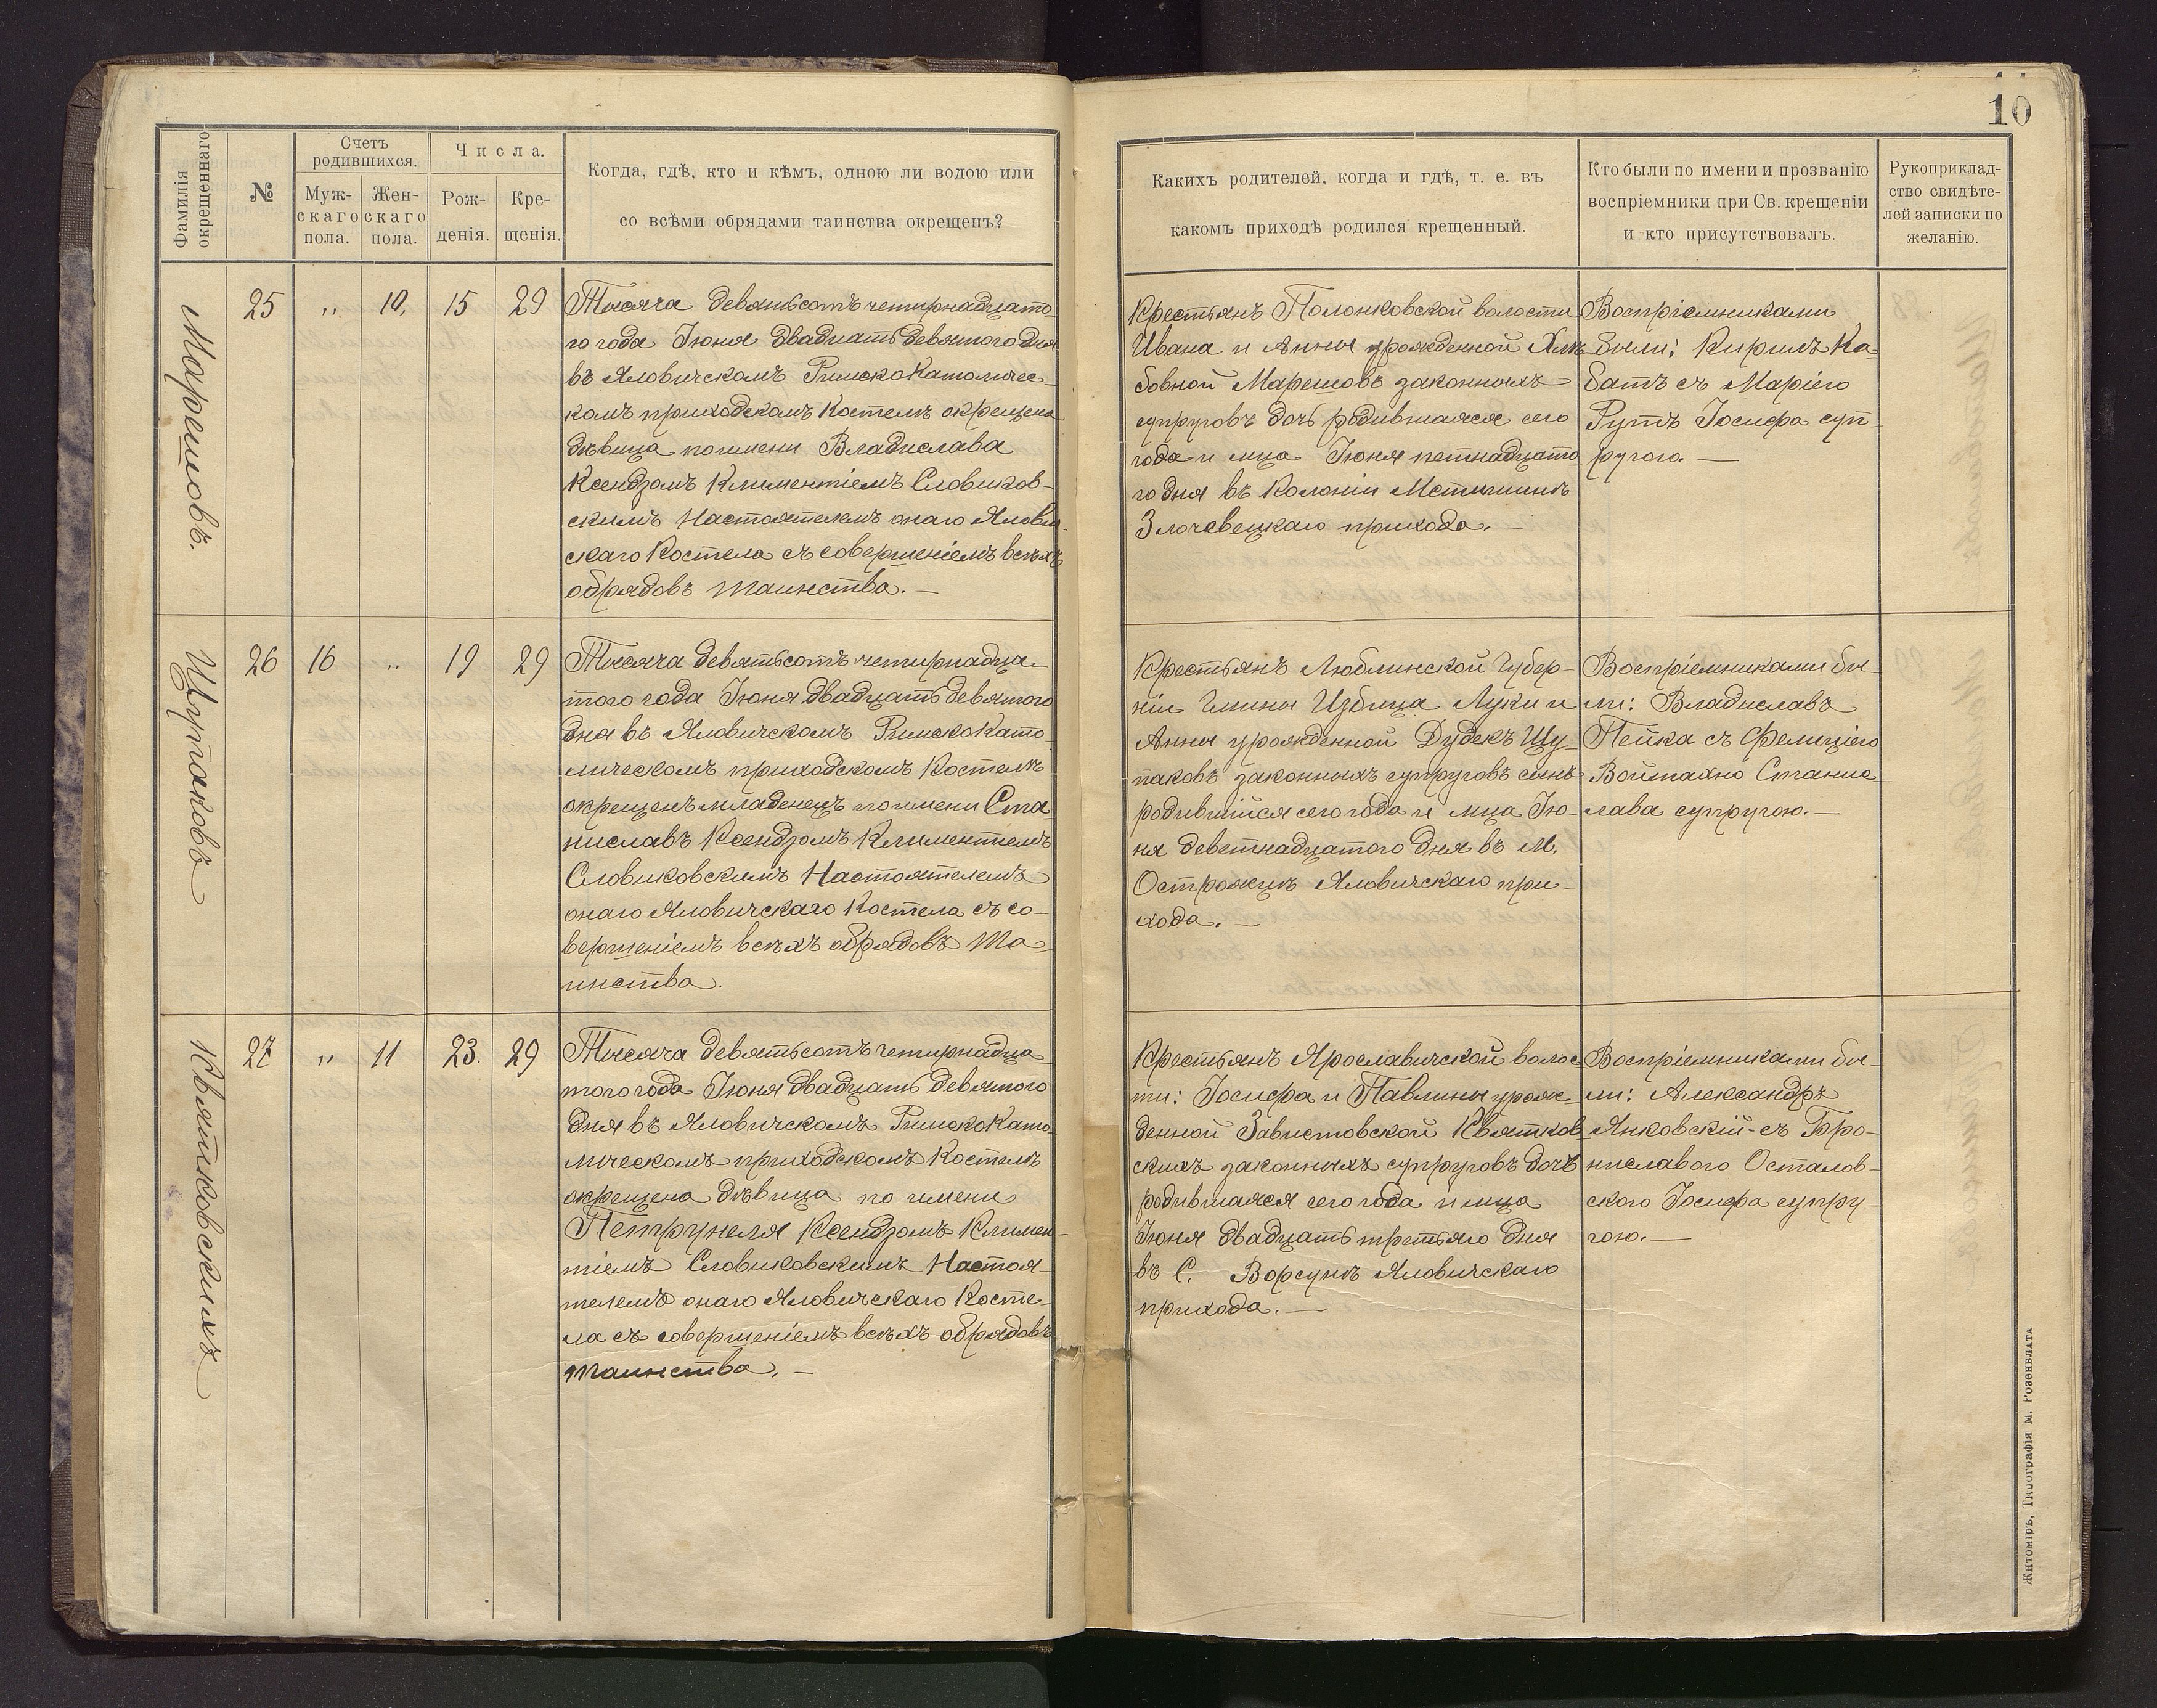 10
Фамилія
окрещеннаго
№
Счетъ
родившихся.
Муж-
скаго
пола.
Жен-
скаго
пола.
Числа.
Рож-
денія.
Кре-
щенія.
Когда, гдѣ, кто и кѣмъ, одною ли водою или
со всѣми обрядами таинства окрещенъ?
Какихъ родителей, когда и гдѣ, т. е. въ
какомъ приходѣ родился крещенный.
Кто были по имени и прозванію
воспріемники при Св. крещеніи
и кто присутствовалъ.
Рукоприклад-
ство свидѣте-
лей записки по
желанію.
Марешовъ.
25 „ 10, 15 29
Тысяча девятьсотъ четырнадцато
го года Іюня двадцать девятого дня
въ Яловичскомъ Римско Католичес-
комъ приходскомъ Костелѣ окрещена
дѣвица по имени Владислава
Ксендзомъ Климентіемъ Словиков-
скимъ Настоятелемъ онаго Ялович
скаго Костела съ совершеніемъ всѣхъ
обрядовъ таинства.—
Крестьянъ Полонковской волости
Ивана и Анны урожденной Хле
бовной Марешовъ законныхъ
супруговъ дочь родившаяся сего
года и мца Іюня петнадцато
го дня въ колоніи Мстишинъ
Злочевецкаго прихода.—
Воспріемниками
были: Кирилъ Ка
батъ съ Маріею
Рутъ Іосифа суп-
ругою.—
Щупаковъ
26 16 „ 19 29
Тысяча девятьсотъ четырнадца-
того года Іюня двадцать девятого
дня въ Яловичскомъ Римско Като-
лическомъ приходскомъ Костелѣ
окрещенъ младенецъ по имени Ста
ниславъ Ксендзомъ Климентіемъ
Словиковскимъ Настоятелемъ
онаго Яловичскаго Костела съ со-
вершеніемъ всѣхъ обрядовъ Та-
инства.
Крестьянъ Люблинской Губер-
ніи Гмины Избица Луки и
Анны урожденной Дудекъ Щу-
паковъ законныхъ супруговъ сынъ
родившійся сего года и мца Ію-
ня деветнадцатого дня въ М.
Острожцѣ Яловичскаго при-
хода.—
Воспріемниками бы-
ли: Владиславъ
Пейка съ Фелиціею
Войтахно Станис
лава супругою.—
Квятковскихъ
27 „ 11 23. 29
Тысяча девятьсотъ четырнадца-
того года Іюня двадцать девятого
дня въ Яловичскомъ Римско Като-
лическомъ приходскомъ Костелѣ
окрещена дѣвица по имени
Петрунеля Ксендзомъ Климен-
тіемъ Словиковскимъ Настоя-
телемъ онаго Яловичскаго Косте-
ла съ совершеніемъ всѣхъ обрядовъ
таинства.—
Крестьянъ Ярославичской волос
ти: Іосифа и Павлины урож
денной Завистовской Квятков
скихъ законныхъ супруговъ дочь
родившаяся сего года и мца
Іюня двадцать третьяго дня
въ С. Ворсунъ Яловичскаго
прихода.—
Воспріемниками бы-
ли: Александръ
Янковскій-съ Бро-
ниславою Осталов-
скою Іосифа супру-
гою.—
Житоміръ, Типографія М. Розенблата